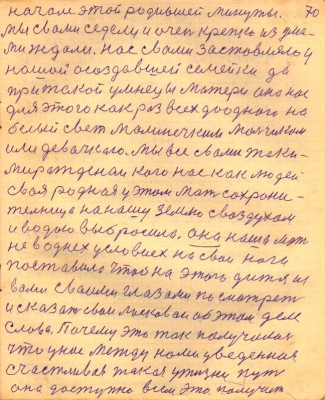 начал этой родившей минуты. 70
Мы с вами седели и очен крепко из уме-
ми ждали. Нас с вами заставляло у
нашой создавшей семейки да
при такой улинец и матери она нас
для этого как раз всех доодного на
белый свет малинечким малчиком
или девачкаю. Мы все с вами таки-
ми ражденаи кого нас как людей
своя родная у этом мат сохрони-
телница на нашу землю с воздухом
и водою выбросила. она наша мат
не в однех условиех на свои ноги
поставила чтоб на этого дитя из
вами своими глазами посмотрет
и сказат свои ласковои об этом деле
слова. Почему это так получилос
что у нас между нами уведенная
счастливая такая у жизни пут
она доступно всем это получит